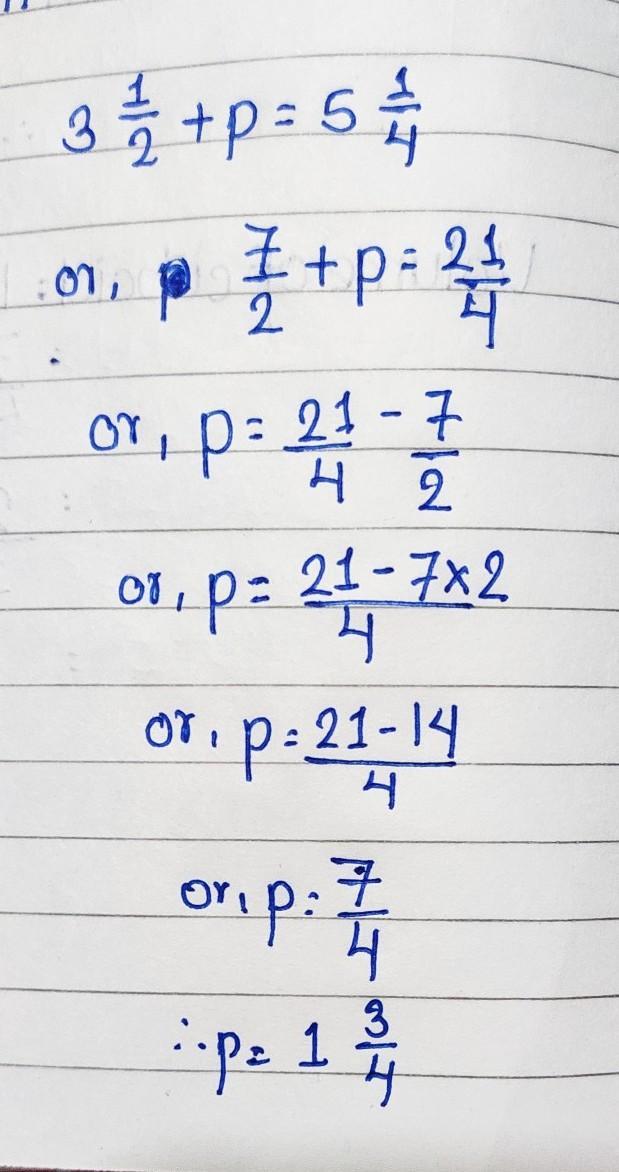 3 1/2 + p = 5 1/4
or, p 7/2 + p = 21/4
or, p = 21/4 - 7/2
or, p = (21 - 7x2)/4
or, p = (21 - 14)/4
or, p = 7/4
∴ p = 1 3/4